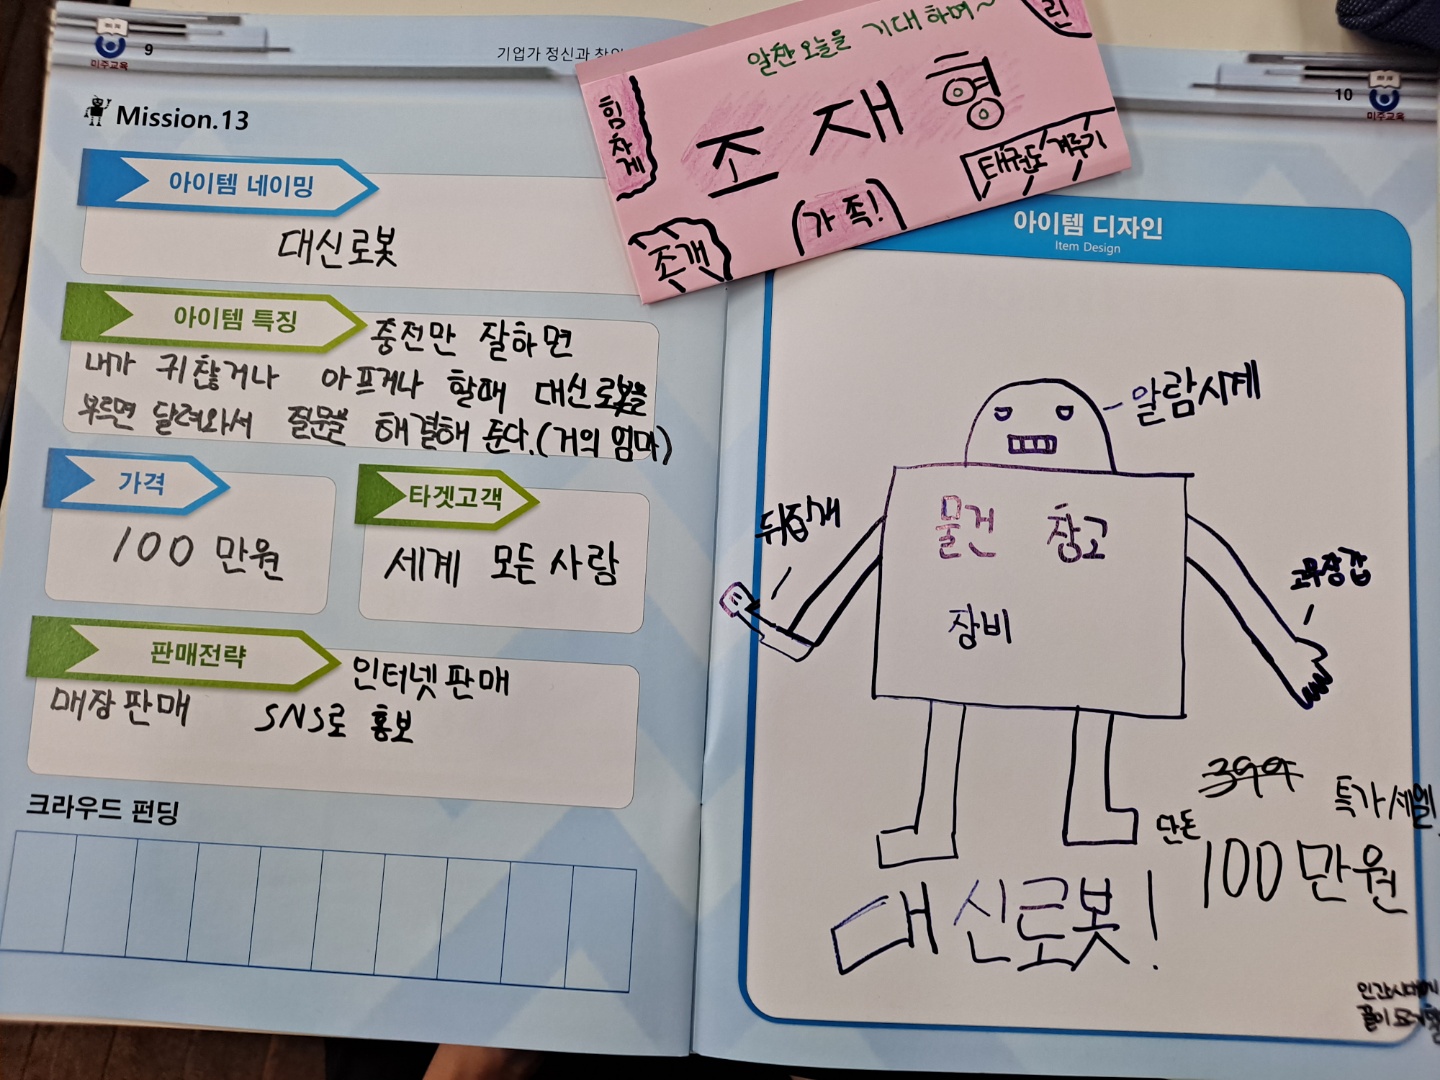 9
미주교육
기업가 정신과 창업
Mission.13
아이템 네이밍
대신로봇
아이템 특징
충전만 잘하면
내가 귀찮거나 아프거나 할때 대신로봇을
부르면 달려와서 질문을 해결해 준다.(거의 엄마)
가격
100 만원
타겟고객
세계 모든 사람
판매전략
인터넷 판매
매장 판매 SNS로 홍보
크라우드 펀딩
알찬 오늘을 기대하며~
힘차게
조재형
태권도 겨루기
조개
(가족!)
10
미주교육
아이템 디자인
Item Design
알람시계
뒤집개
물건 창고
장비
고무장갑
399
특가/세일
단돈
100 만원
대신로봇!